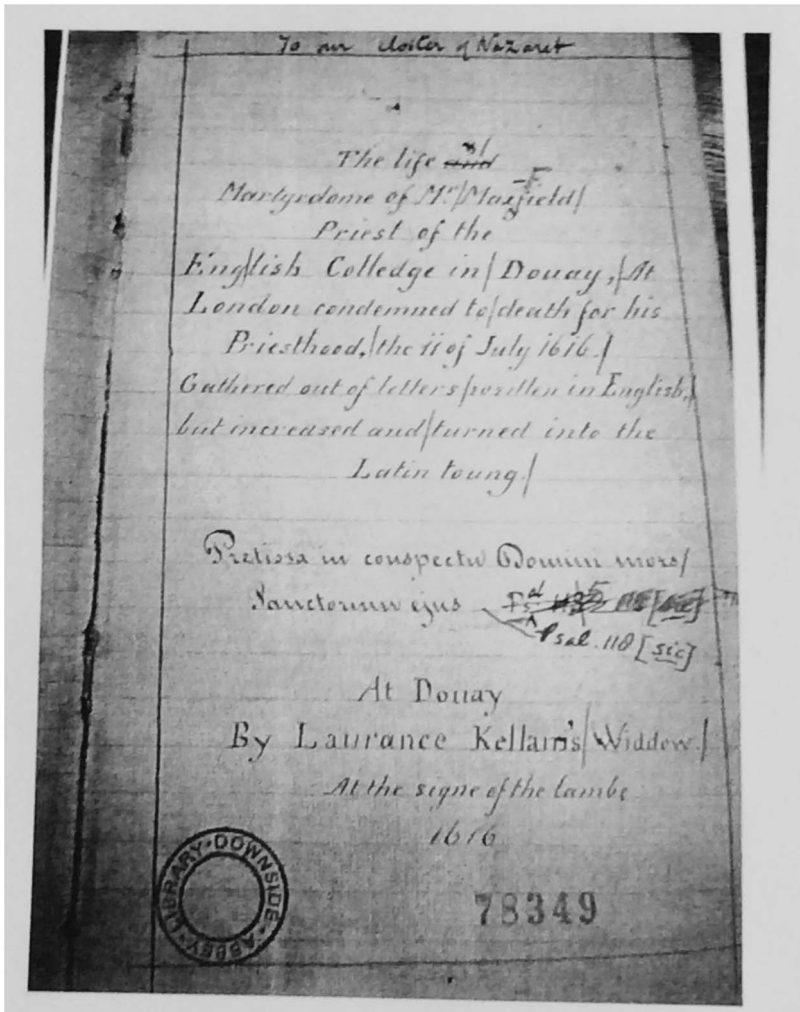 To our cloister of Nazaret
The life and
Martyrdome of Mr/Maxfield/
Priest of the
Eng/lish Colledge in/Douay,/At
London condemned to/death for his
Priesthood,/the 11 of July 1616./
Gathered out of letters/written in English,/
but increased and/turned into the
Latin toung./
Pretiosa in conspectu Domini mors/
Sanctorum ejus
Psal. 118 [sic]
At Douay
By Laurance Kellam's/Widdow./
At the signe of the lambe
1616
LIBRARY·DOWNSIDE·ABBEY
78349